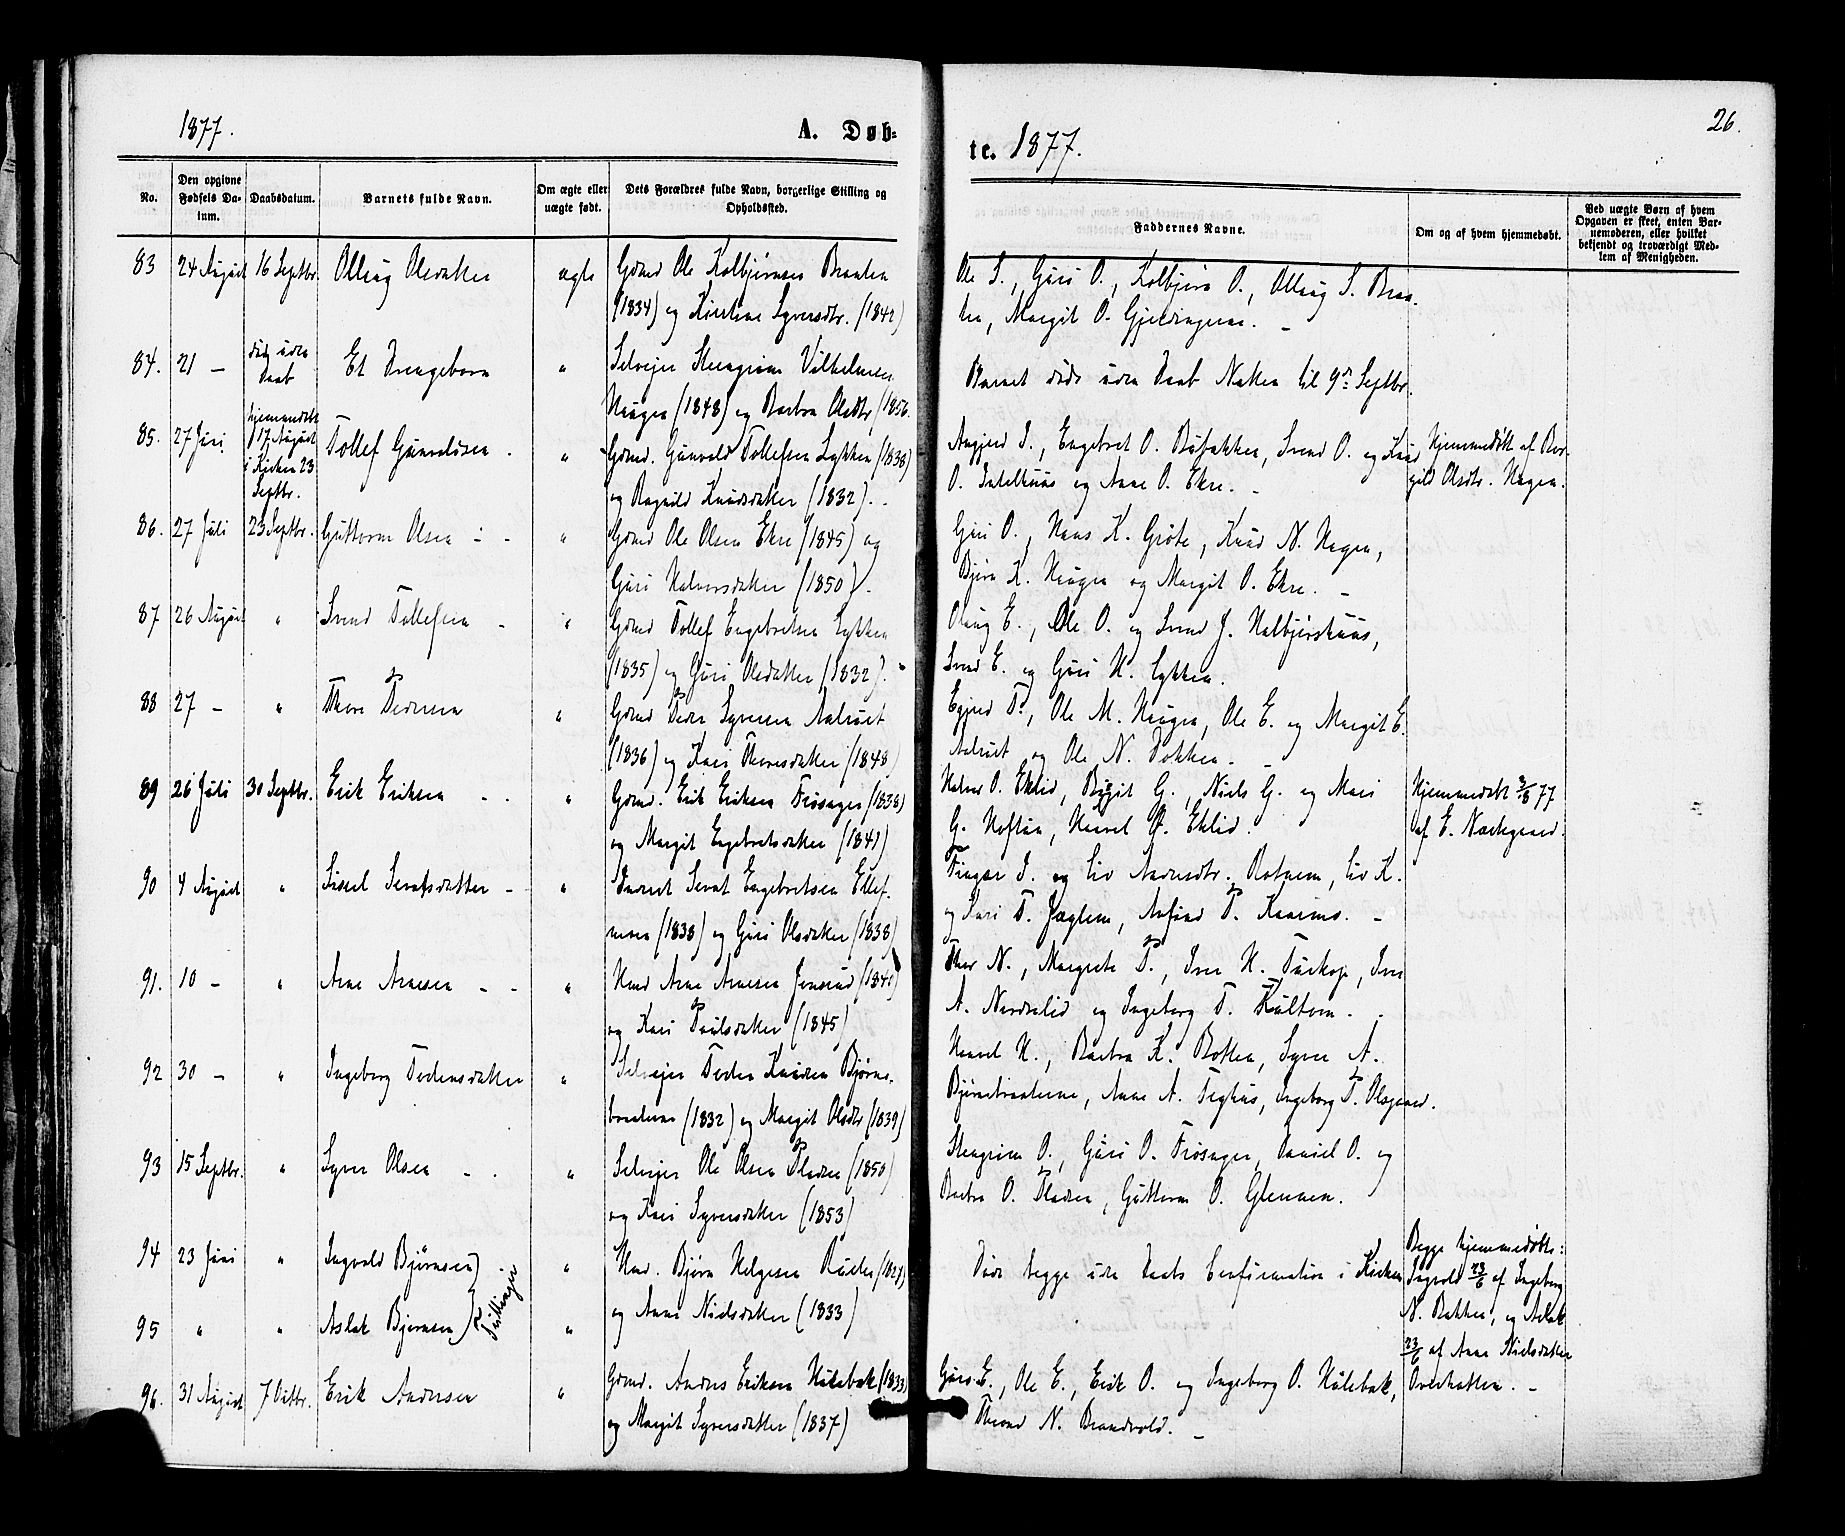 1877.
A. Døb-
te. 1877.
26.
No.
Den opgivne Fødsels Datum.
Daabsdatum.
Barnets fulde Navn.
Om ægte eller uægte født.
Dets Forældres fulde Navn, borgerlige Stilling og Opholdssted.
Faddernes Navne.
Om og af hvem hjemmedøbt.
Ved uægte Børn af hvem Opgaven er skeet, enten Barnemoderen, eller hvilket bekjendt og troværdigt Medlem af Menigheden.
83 24 August 16 Septbr. Olleug Olsdatter ægte Gdmd Ole Kolbjørnsen Braaten
(1834) og Kirstine Syversdtr. (1842)
Ole S., Guri O., Kolbjørn O., Olleug S. Braa-
ten, Margit O. Gjeldingerne. –
84. 21 – død uden Daab Et Drengebarn " Selveier Steingrim Vilhelmsen
Haugen (1848) og Barbra Olsdtr (1856.
Barnet døde uden Daab Natten til 9de Septbr.
85. 27 Juni hjemmedøbt 17 August i Kirken 23 Septbr. Tollef Gunvaldsen. " Gdmd. Gunvald Tollefsen Lykken (1838)
og Ragnild Knudsdatter (1832). -
Engebret O. Svend O. og Knud
O. og Anne O. Ekre. –
Hjemmedøbt af Bor-
gild Olsdtr. Hagen.
86. 27 Juli 23 Septbr. Guttorm Olsen " Gdmd Ole Olsen Ekre (1845) og
Guri Halvorsdatter (1850).
Guri O., Hans K. Grøte, Knud N. Hagen,
Bjørn K. Haugen og Margit O. Ekre. –
87 26 August " Svend Tollefsen " Gdmd Tollef Engebretsen Lykken
(1835) og Guri Olsdatter (1832).
Olaug E., Ole O. og Svend J.
Svend E. og Guri K. Lykken.
88 27 – " Thore Pedersen " Gdmd Peder Syversen Aalrust
(1836) og Kari Thoresdatter (1848)
P., Ole M. Haugen, Ole E. og Margit E.
Aalrust og Ole N. Dokken. –
89 26 Juli 30 Septbr. Erik Eriksen " Gdmd. Erik Eriksen Frøsager (1838)
og Margit Engebretsdatter (1841)
Halvor O. Eklid, Birgit G., Niels G. og Mari
G. Hoftun, O. Eklid.
Hjemmedøbt 3/8 77
af E. Nærkgaard.
90 4 August " Sissel Sevatsdatter " Sevat Engebretsen Ellef-
(1838) og Guri Olsdatter (1838)
J. og Liv Andersdtr. Rotneim, Liv K.
og Kari T. Jæglum, P.
91. 10 – " Arne Arnesen " Hmd Arne Arnesen (1840)
og Kari Paulsdatter (1845)
Thor N., Margrete P., Iver H. Iver
A. Nordvalid og Ingeborg T. Kultom.
92 30 – " Ingeborg Pedersdatter " Selveier Peder Knudsen Bjørne-
braatene (1832) og Margit Olsdtr (1839)
H., Barbra K. Botten, Syver A.
Bjørnebraatene, Anne A. Ingeborg T. Olsgaard.
93 15 Septbr. " Syver Olsen " Selveier Ole Olsen Pladsen (1850)
og Kari Syversdatter (1853)
Steingrim O., Guri O. Frøsager, Daniel O. og
Barbra O. Pladsen, Guttorm O. Glennen.
94 23 Juni " Ingvald Bjørnsen " Hmd. Bjørn Helgesen (1829)
og Anne Nielsdatter (1833)
Døde begge uden Daabs Confirmation i Kirken
Begge hjemmedøbte:
Ingvald 23/6 af Ingeborg
N. Bakken, og Aslak
23/6 af Anne Nielsdatter
Overhatten. –
95 " " Aslak Bjørnsen "
Tvillinger
96. 31 August 7 Octbr. Erik Andersen " Gdmd. Anders Eriksen Hulebak (1833)
og Margit Syversdatter (1837)
Guri E., Ole E., Erik O. og Ingeborg O. Hulebak,
Thrond N. Brandvold. –